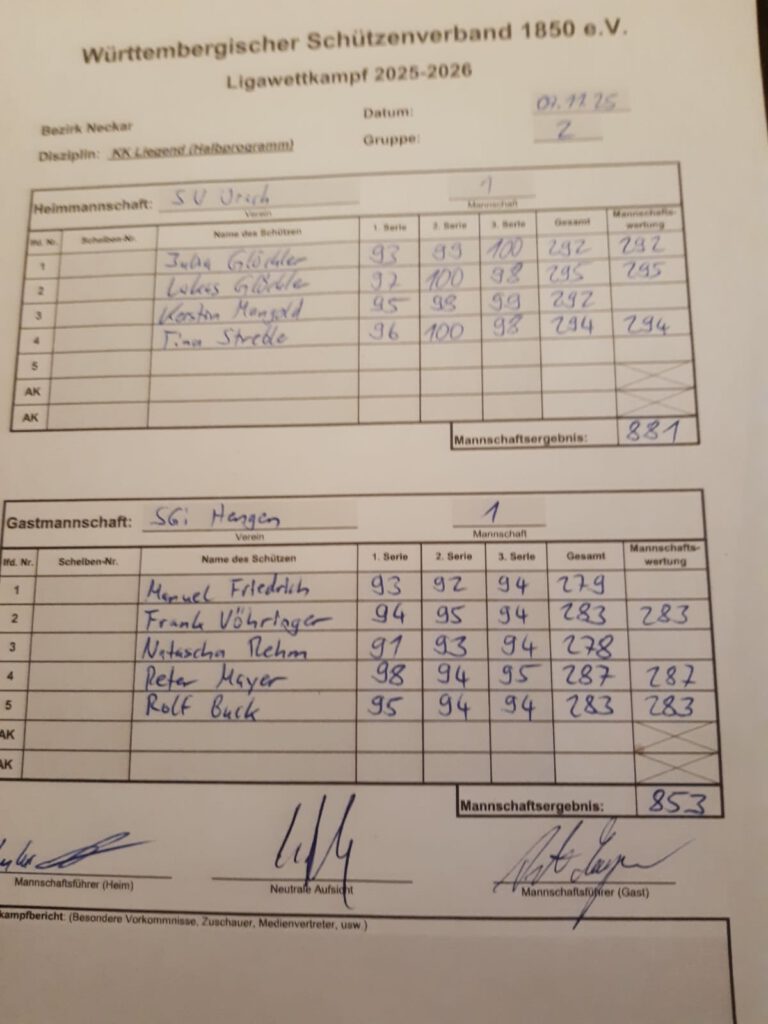 Württembergischer Schützenverband 1850 e.V.
Ligawettkampf 2025-2026
Bezirk Neckar
Datum: 07.11.25
Disziplin: KK Liegend (Halbprogramm)
Gruppe: 2
Heimmannschaft: SV Urach 1
Verein Mannschaft
lfd. Nr. Scheiben-Nr. Name des Schützen 1. Serie 2. Serie 3. Serie Gesamt Mannschafts-
wertung
1 Julia Glöckler 93 99 100 292 292
2 Lukas Glöckler 97 100 98 295 295
3 Kerstin Mangold 95 98 99 292
4 Tina Streble 96 100 98 294 294
5
AK
AK
Mannschaftsergebnis: 881
Gastmannschaft: SGi Hengen 1
Verein Mannschaft
lfd. Nr. Scheiben-Nr. Name des Schützen 1. Serie 2. Serie 3. Serie Gesamt Mannschafts-
wertung
1 Manuel Friedrich 93 92 94 279
2 Frank Vöhringer 94 95 94 283 283
3 Natascha Rehm 91 93 94 278
4 Peter Mayer 98 94 95 287 287
5 Rolf Buck 95 94 94 283 283
AK
AK
Mannschaftsergebnis: 853
Mannschaftsführer (Heim) Neutrale Aufsicht Mannschaftsführer (Gast)
kampfbericht: (Besondere Vorkommnisse, Zuschauer, Medienvertreter, usw.)